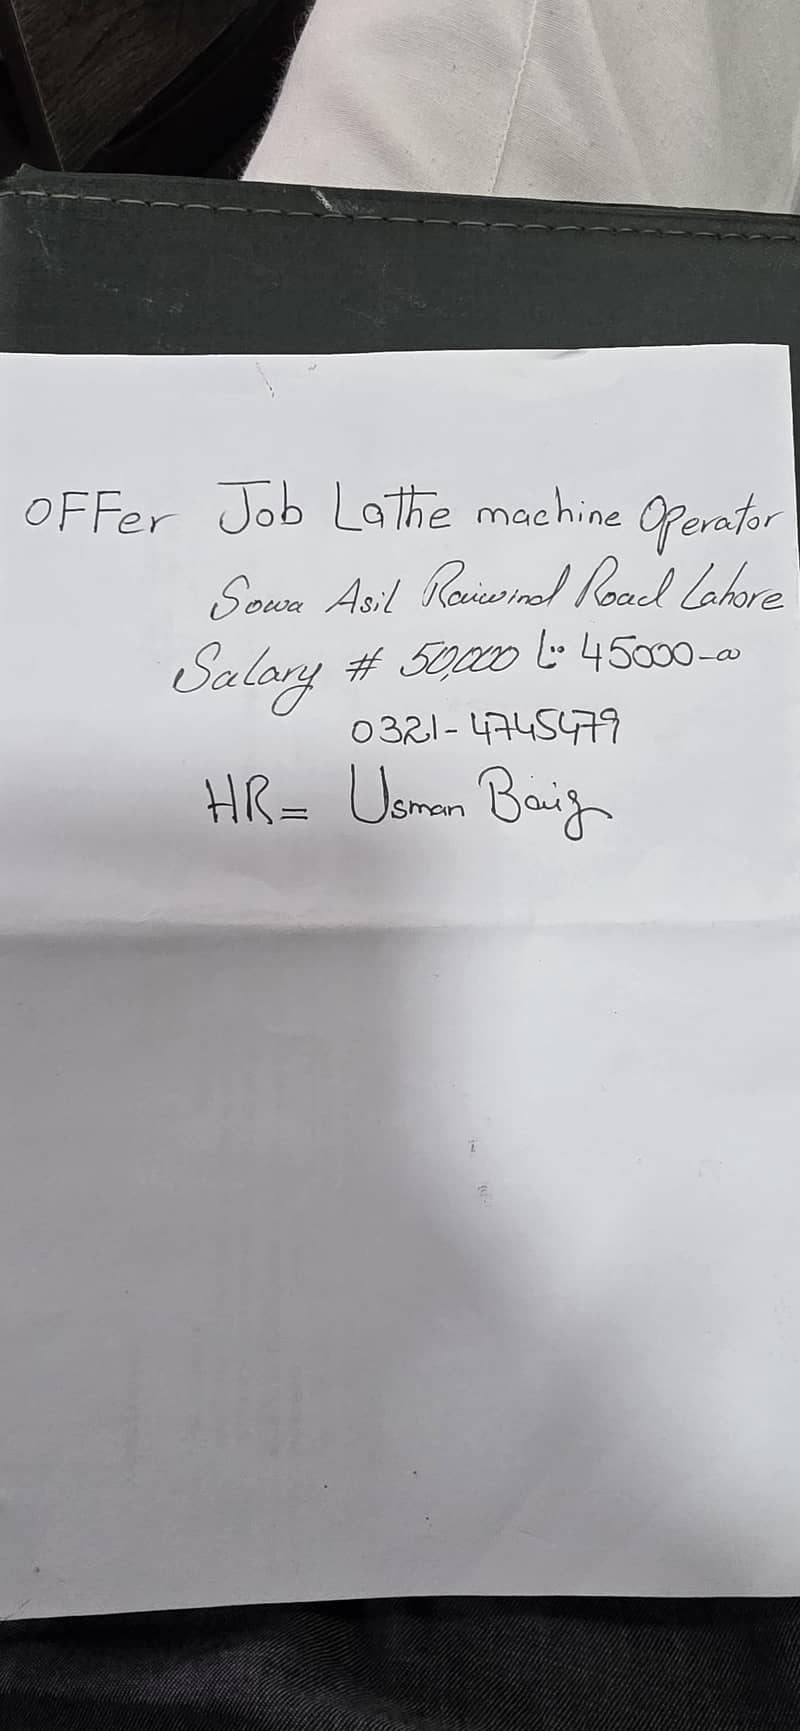 OFFer Job Lathe machine Operator
Sowa Asil Raiwind Road Lahore
Salary # 50,000 تا 45000-00
0321-4745479
HR= Usman Baig